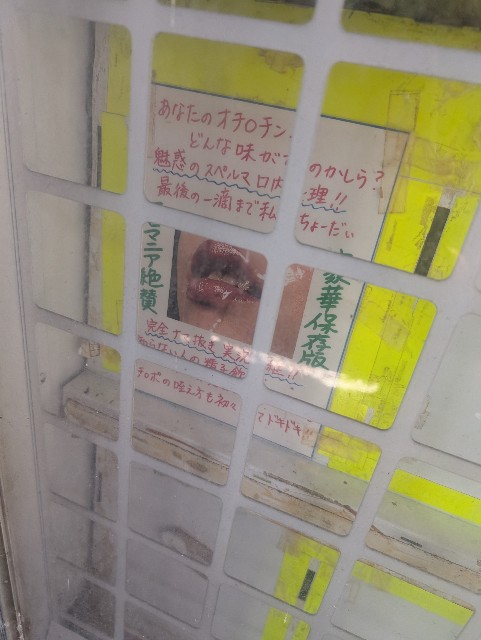 あなたのオチ〇チン、
どんな味が のかしら?
魅惑のスペルマ口内 理!!
最後の一滴まで私 ちょーだい
マニア絶賛
豪華保存版
完全 抜き 実況
知らない人の
チ〇ポの咥え方も初々
てドキドキ!!